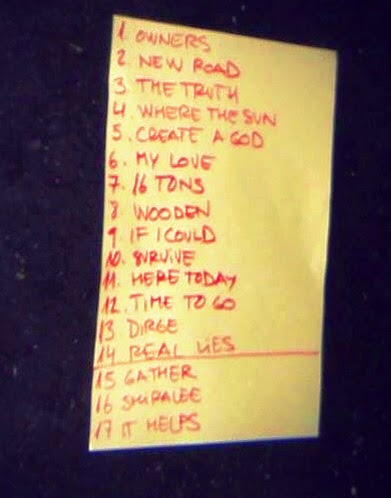 1. OWNERS
2. NEW ROAD
3 THE TRUTH
4. WHERE THE SUN
5. CREATE A GOD
6. MY LOVE
7. 16 TONS
8. WOODEN
9. IF I COULD
10. SURVIVE
11. HERE TODAY
12. TIME TO GO
13 DIRGE
14 REAL LIES
15 GATHER
16 SHIRALEE
17 IT HELPS